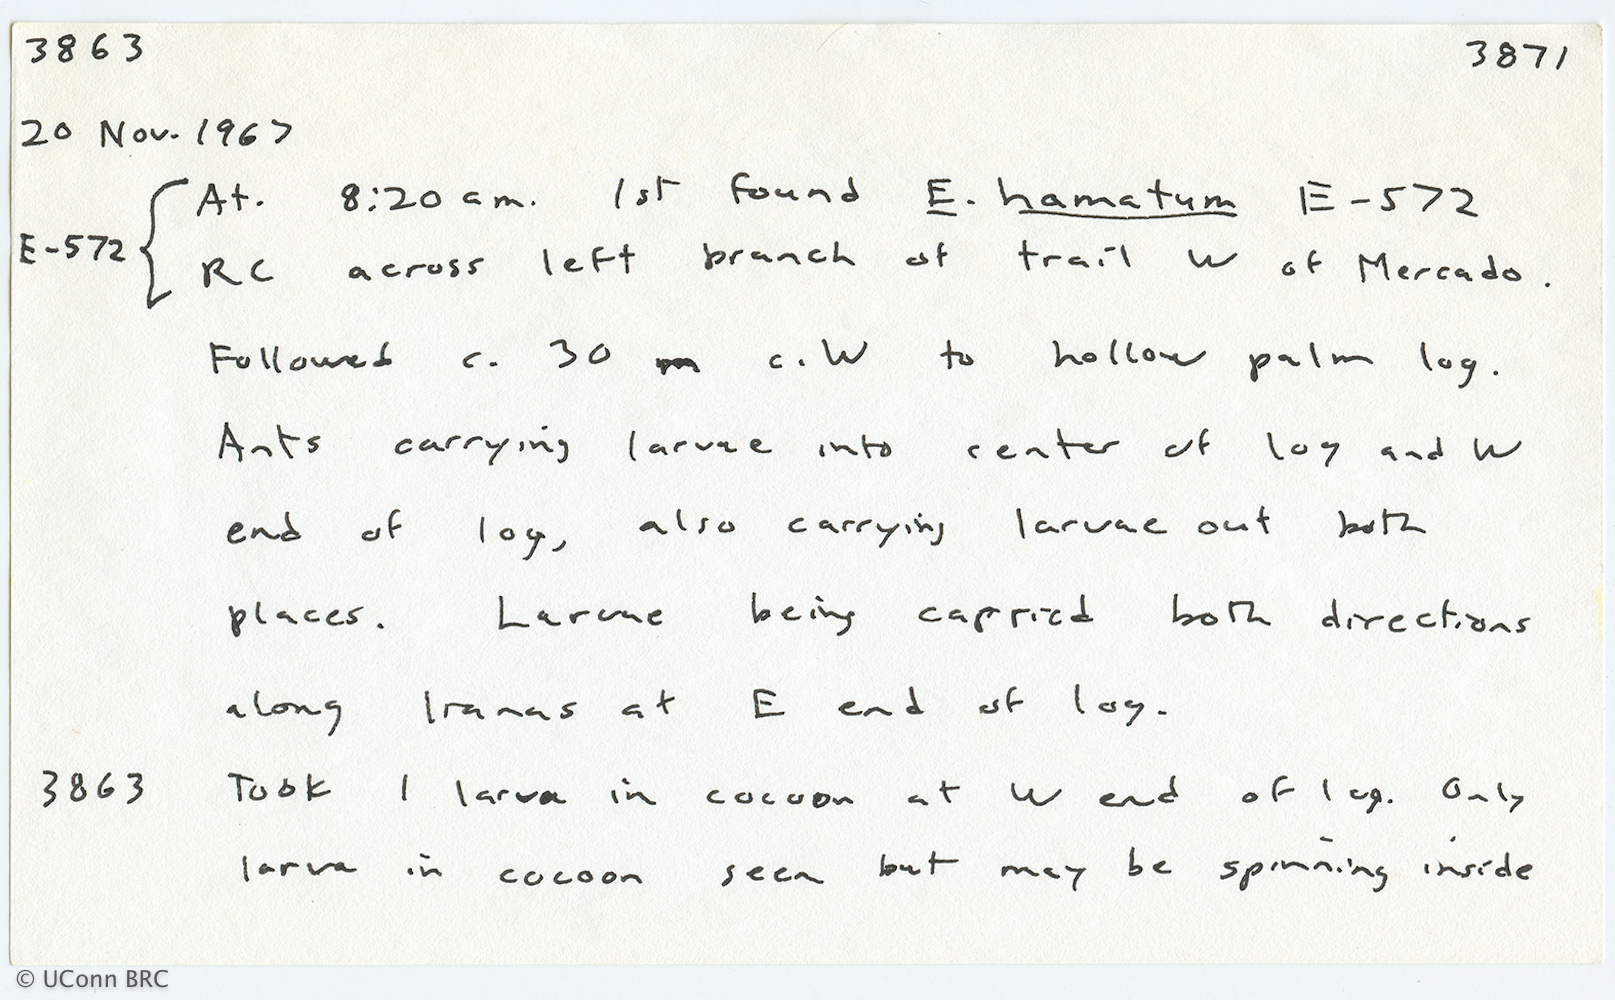 3863 3871
20 Nov. 1967
At. 8:20 am. 1st found E. hamatum E-572
E-572
RC across left branch of trail W of Mercado.
Followed c. 30 m c. W to hollow palm log.
Ants carrying larvae into center of log and W
end of log, also carrying larvae out both
places. Larvae being carried both directions
along lianas at E end of log.
3863 Took 1 larva in cocoon at W end of log. Only
larva in cocoon seen but may be spinning inside
© UConn BRC